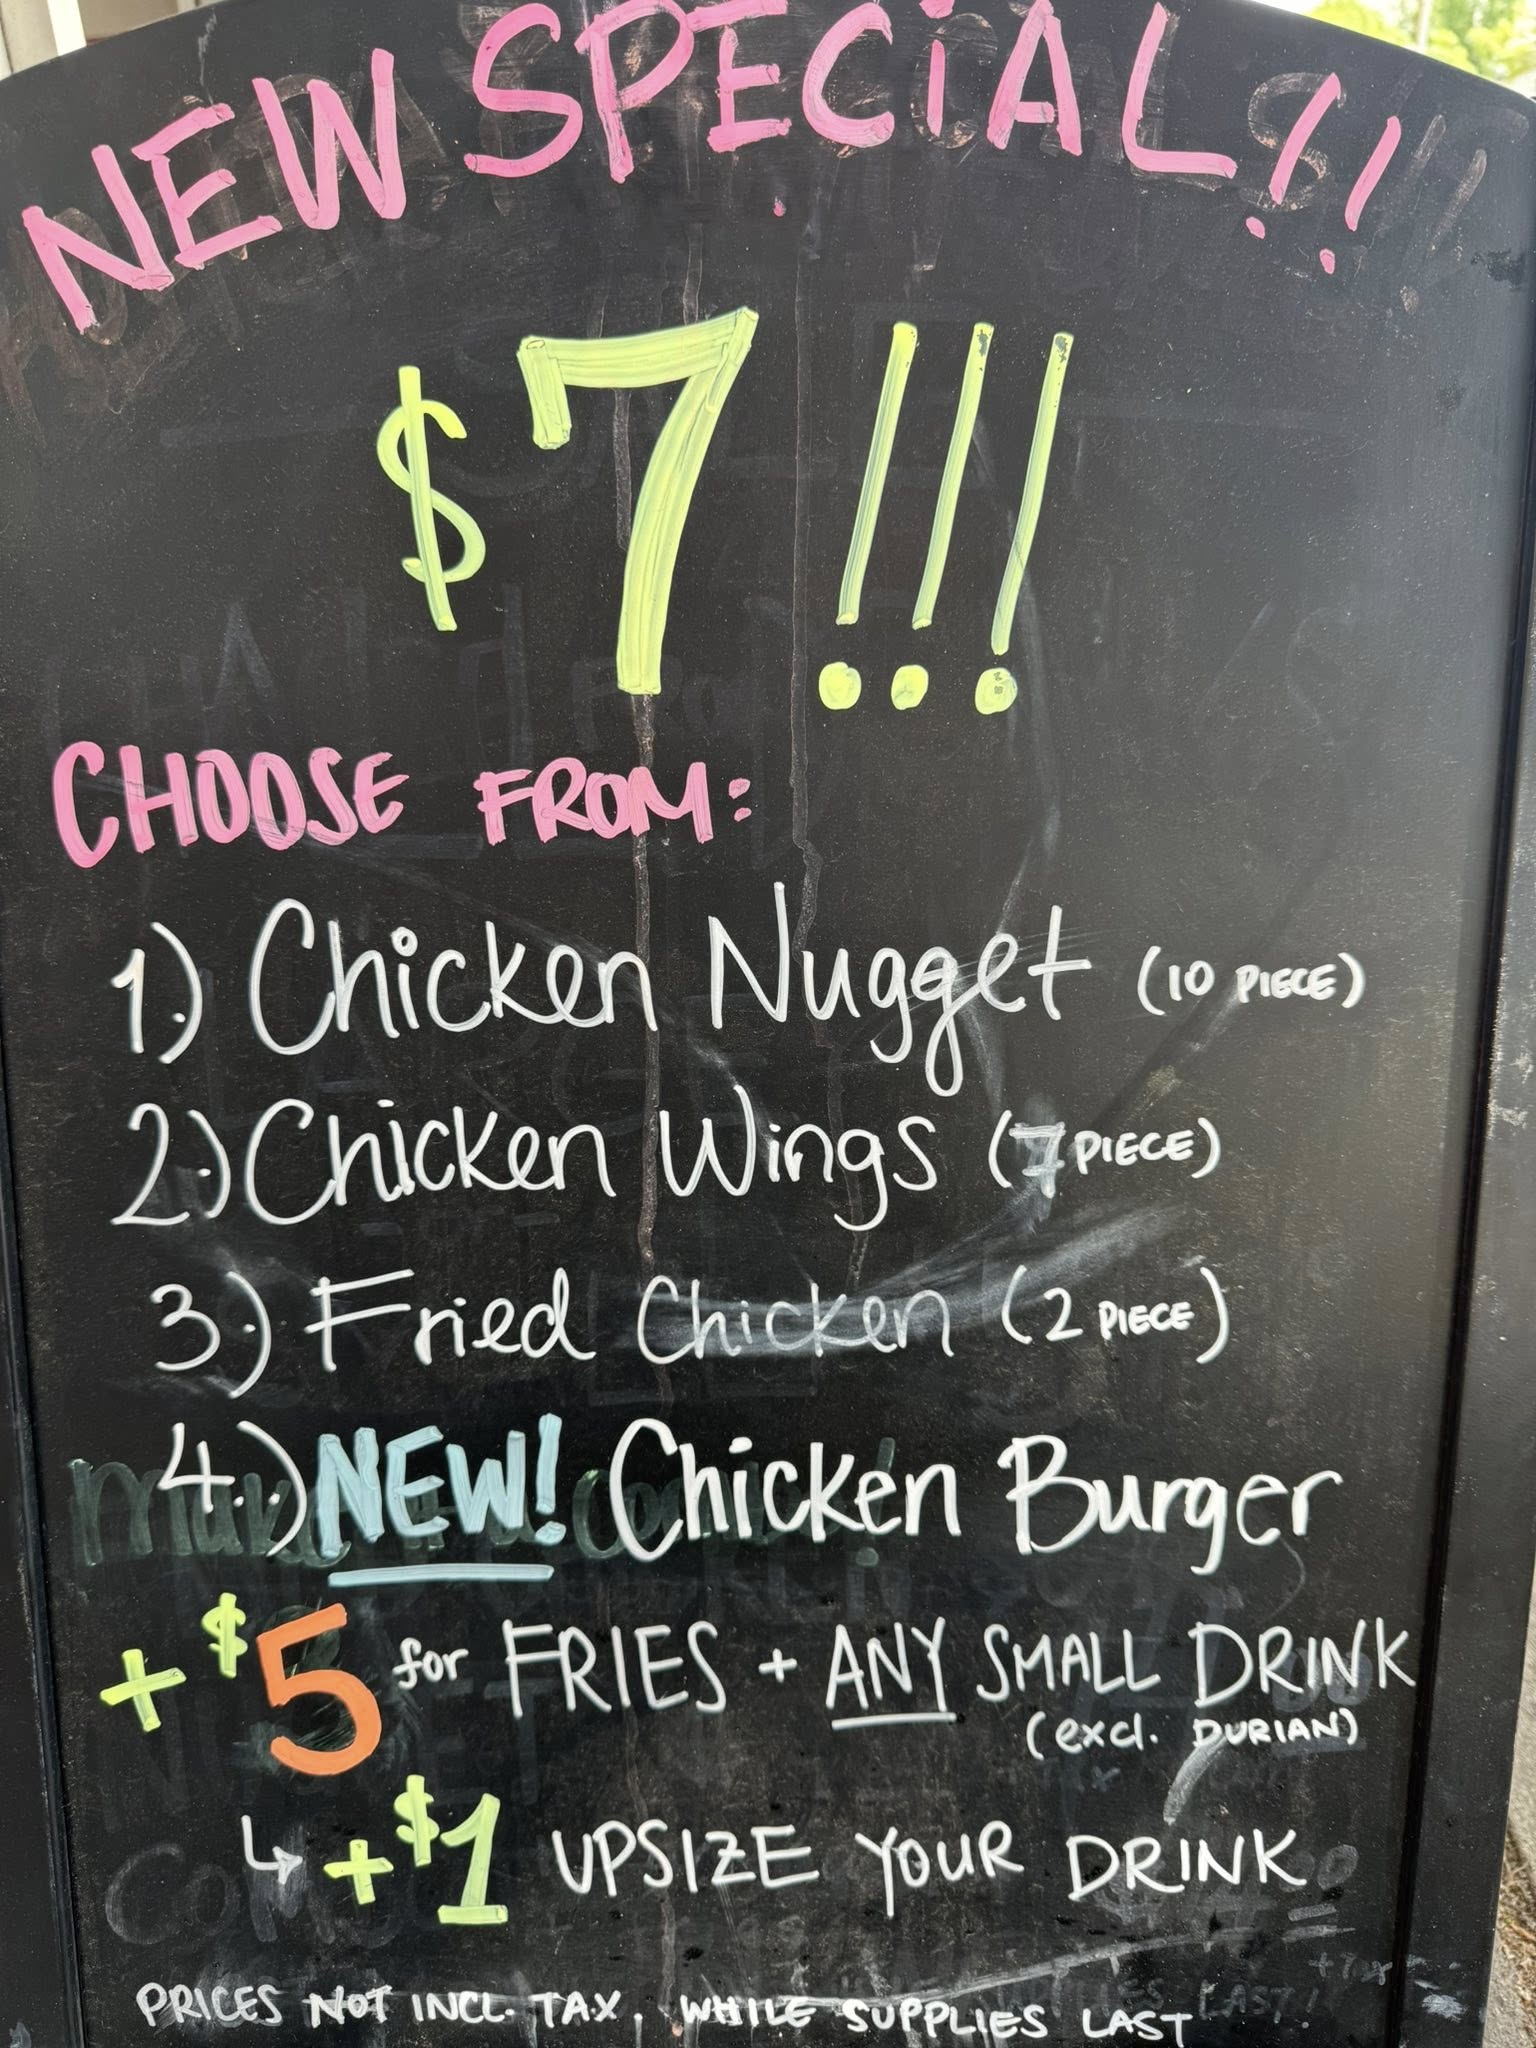 NEW SPECIAL!!
$7!!!
CHOOSE FROM:
1.) Chicken Nugget (10 PIECE)
2.) Chicken Wings (7 PIECE)
3.) Fried Chicken (2 PIECE)
4.) NEW! Chicken Burger
+ $5 for FRIES + ANY SMALL DRINK
(excl. DURIAN)
↳ + $1 UPSIZE YOUR DRINK
PRICES NOT INCL. TAX. WHILE SUPPLIES LAST